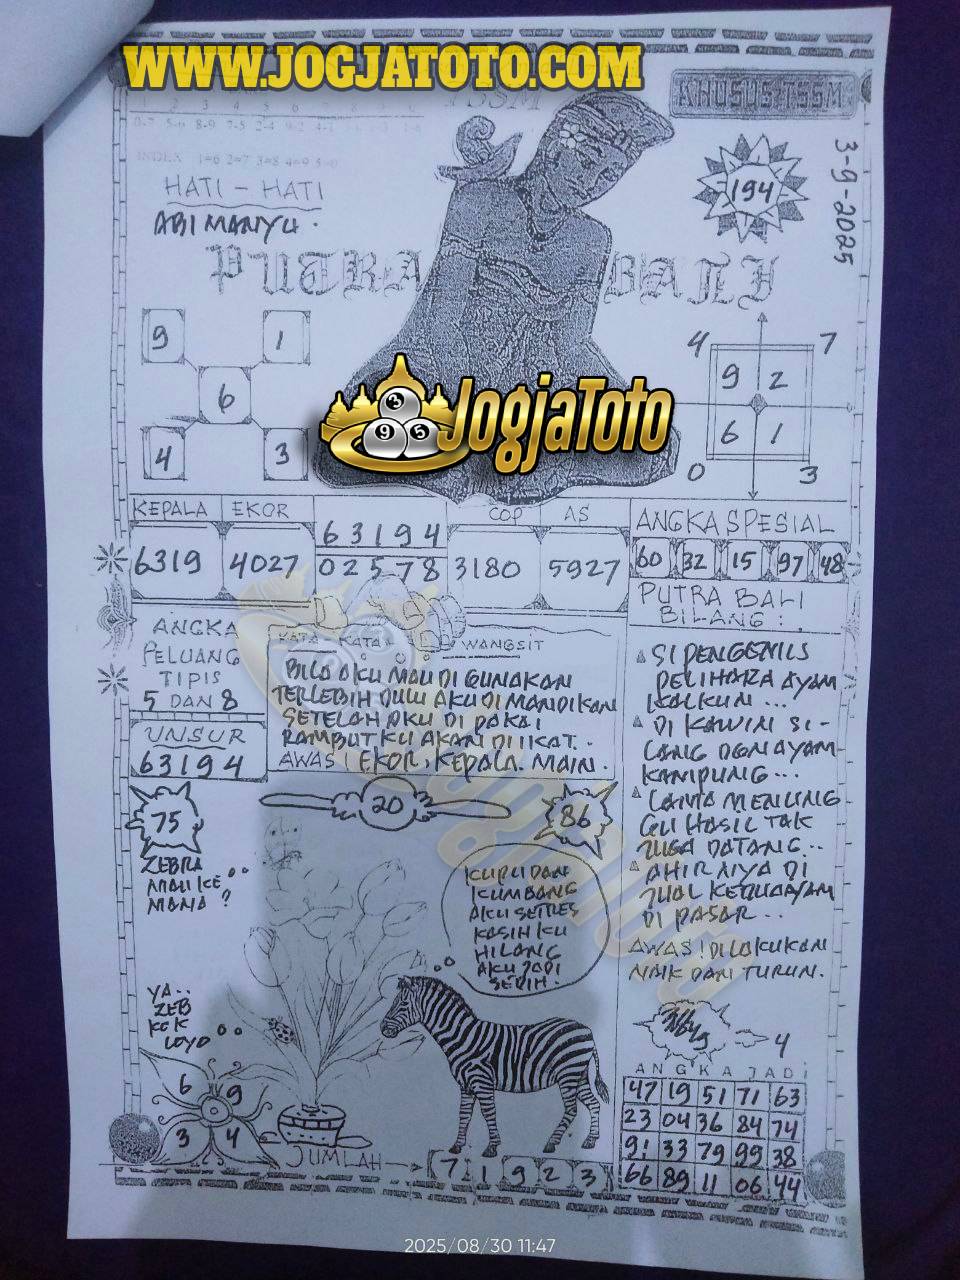 WWW.JOGJATOTO.COM
TSSM
KHUSUS TSSM
1 2 3 4 5 6
0-7 5-6 8-9 7-5 2-4
INDEX 1=6 2=7 3=8 4=9 5=0
HATI - HATI
ABI MANYU.
194
3-9-2025
PUTRA BALI
9 1
6
4 3
4 7
9 2
6 1
0 3
JogjaToto
3
9 5
KEPALA EKOR
6319 4027
63194
02578
COP AS
3180 5927
ANGKA SPESIAL
60 32 15 97 48
PUTRA BALI
BILANG :
ANGKA
PELUANG
TIPIS
5 DAN 8
UNSUR
63194
KATA - KATA WANGSIT
BILA AKU MAU DI GUNAKAN
TERLEBIH DULU AKU DI MANDIKAN
SETELAH AKU DI PAKAI
RAMBUT KU AKAN DI IKAT..
AWAS! EKOR, KEPALA. MAIN.
SI PENGEMIS
PELIHARA AYAM
KALKUN ...?
DI KAWIN SI-
LANG DGN AYAM
KAMPUNG...
LAMA MENUNG
GU HASIL TAK
JUGA DATANG..
AHIRNYA DI
JUAL KEDUA AYAM
DI PASAR ..
AWAS! DILAKUKAN
NAIK DAN TURUN.
75
20
86
ZEBRA
MAU KE
MANA ?
KUPU DAN
KUMBANG
AKU SETRES
KASIH KU
HILANG
AKU JADI
SEDIH.
YA..
ZEB
KOK
LOYO
6 9
3 4
JUMLAH
7 1 9 2 3
4
ANGKA JADI
47 19 51 71 63
23 04 36 84 74
91 33 79 99 38
66 89 11 06 44
2025/08/30 11:47